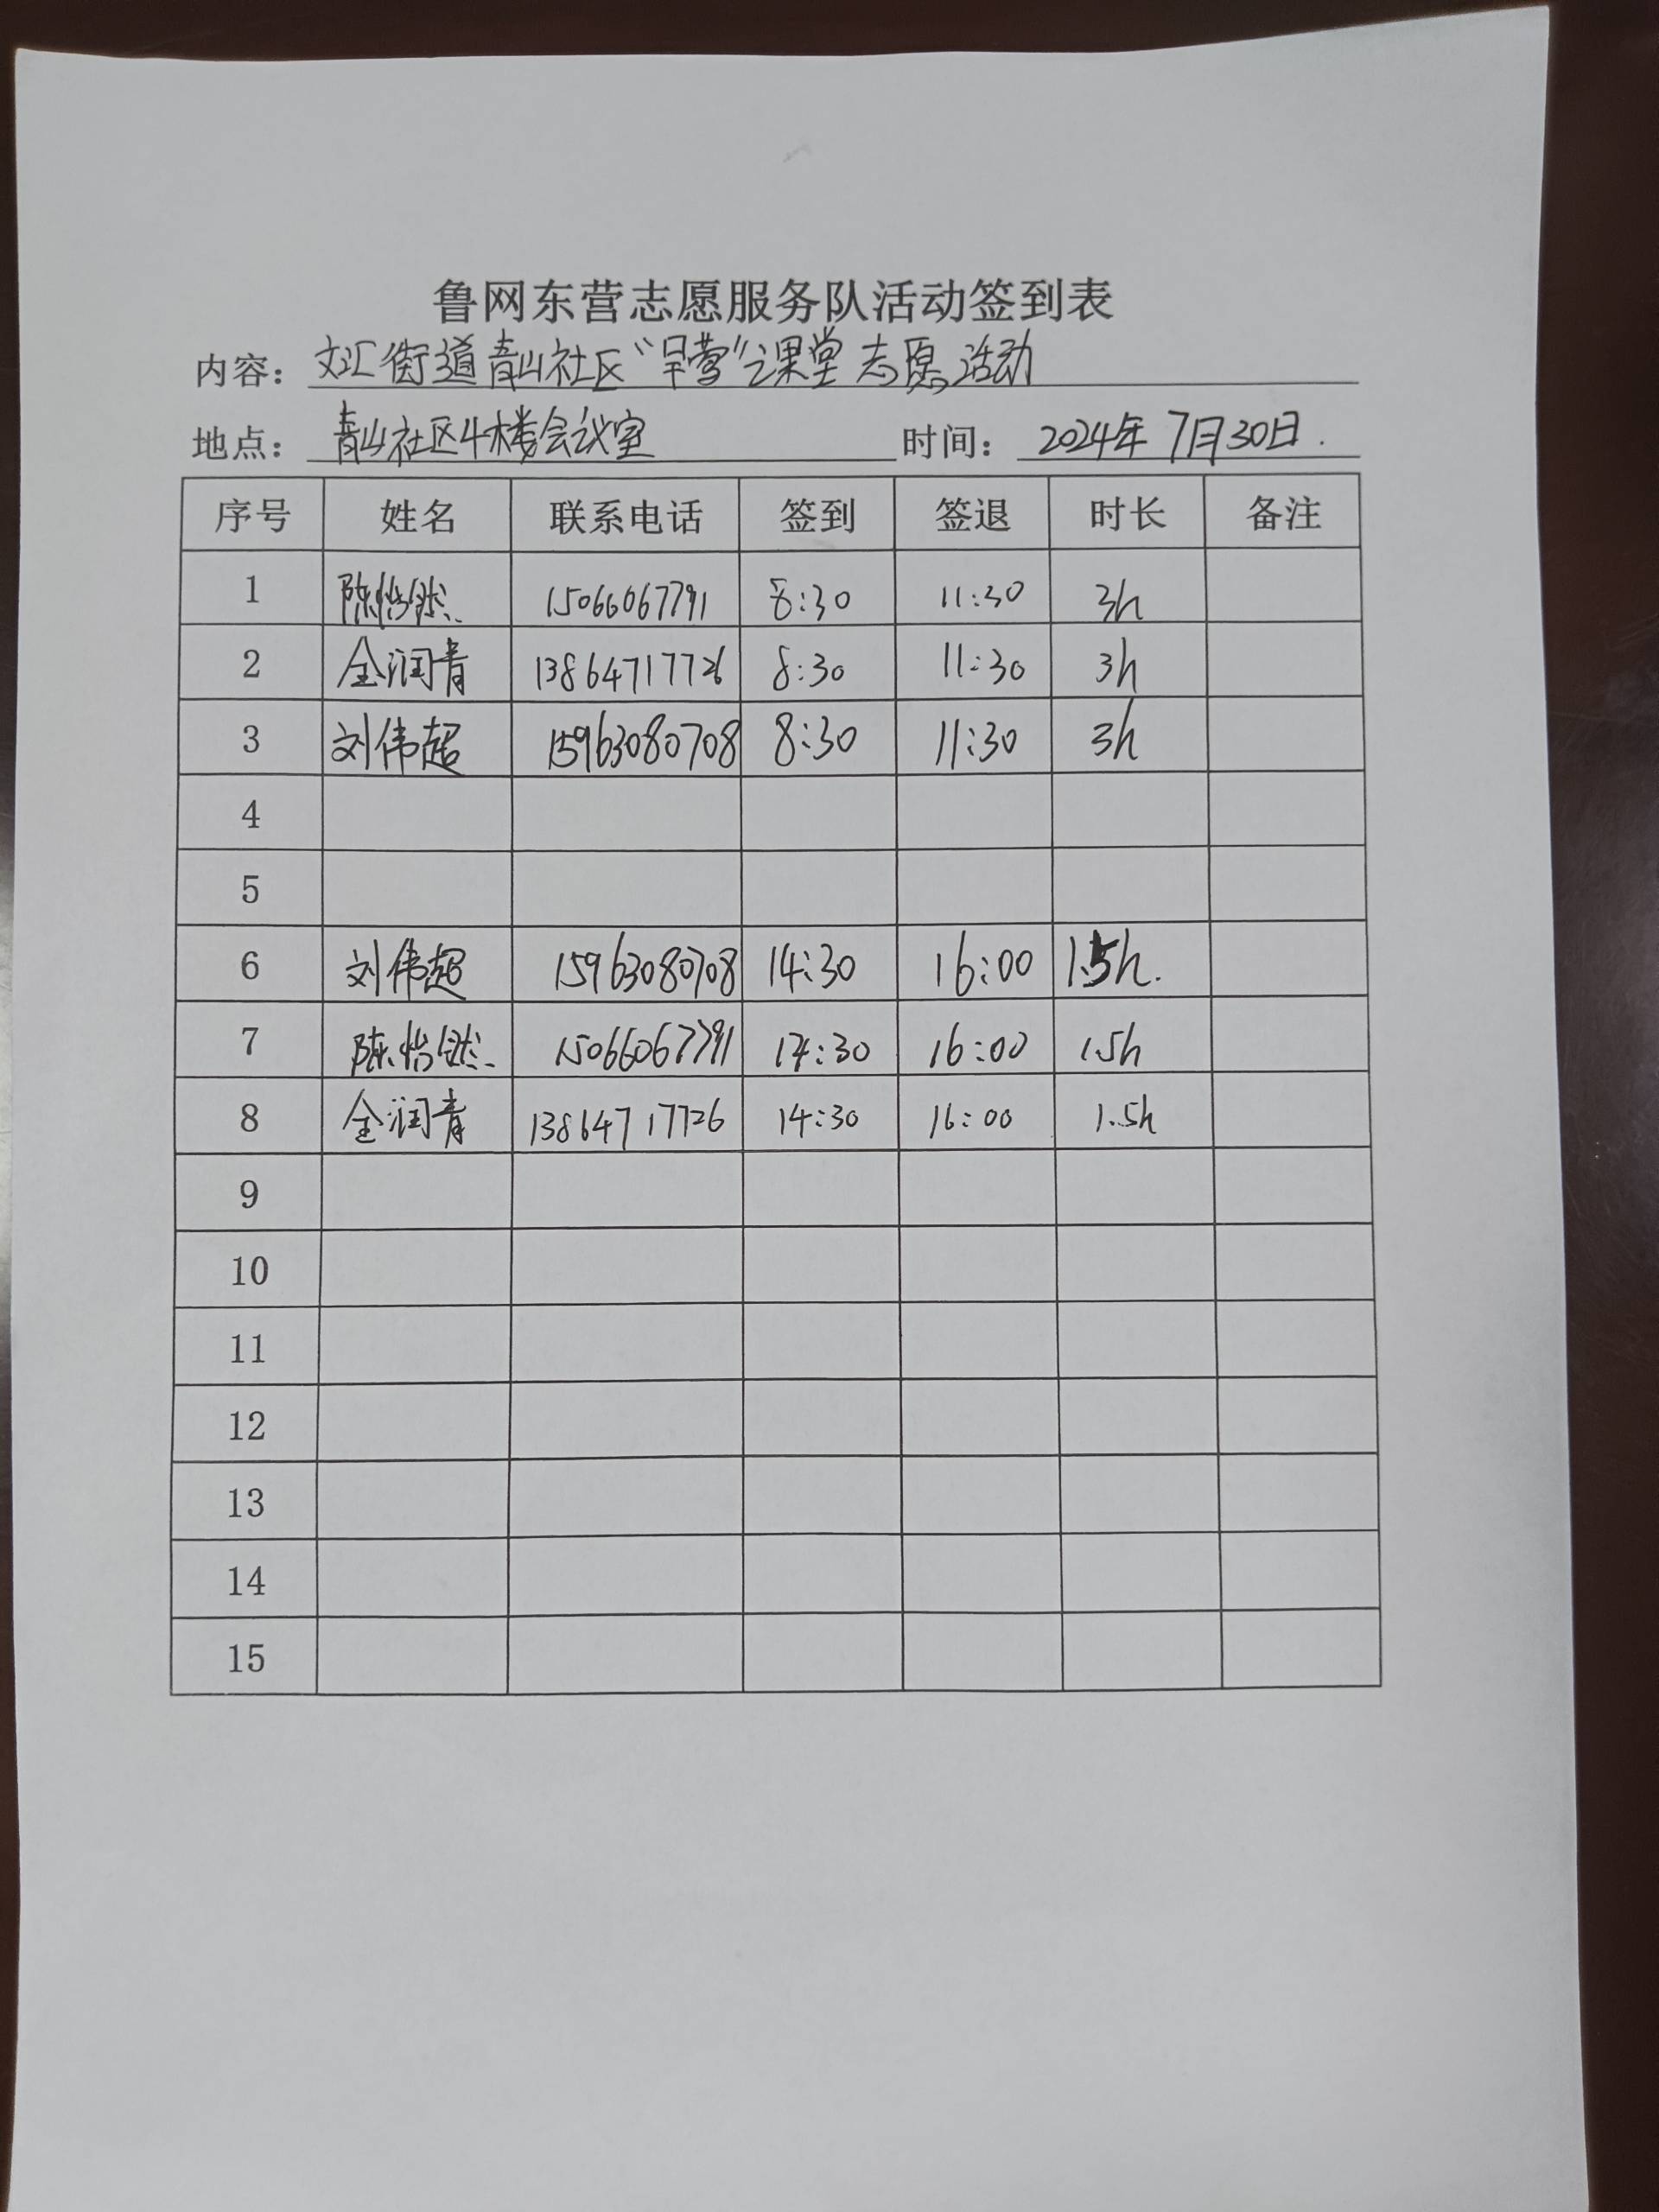 鲁网东营志愿服务队活动签到表
内容：文汇街道青山社区“早营”课堂志愿活动
地点：青山社区4楼会议室 时间：2024年7月30日.
序号 姓名 联系电话 签到 签退 时长 备注
1 陈怡 15066067791 8:30 11:30 3h
2 全润青 13864717726 8:30 11:30 3h
3 刘伟超 15963080708 8:30 11:30 3h
4
5
6 刘伟超 15963080708 14:30 16:00 1.5h.
7 陈怡 15066067791 14:30 16:00 1.5h
8 全润青 13864717726 14:30 16:00 1.5h
9
10
11
12
13
14
15